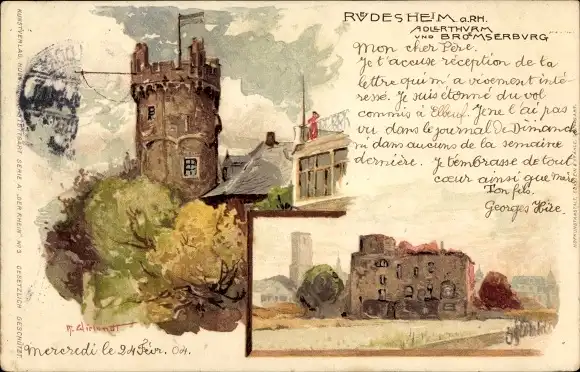 RÜDESHEIM a. RH.
ADLERTHURM
UND BRÖMSERBURG
Mon cher Père.
Je t'accuse réception de ta
lettre qui m'a vivement inté-
ressé. Je suis étonné du vol
commis à Elbeuf. Je ne l'ai pas
vu dans le journal de Dimanche
ni dans aucuns de la semaine
dernière. Je t'embrasse de tout
cœur ainsi que mère
Ton fils.
Georges
Mercredi le 24 Févr. 04.
SERIE A "DER RHEIN" No 3 GESETZLICH GESCHÜTZT